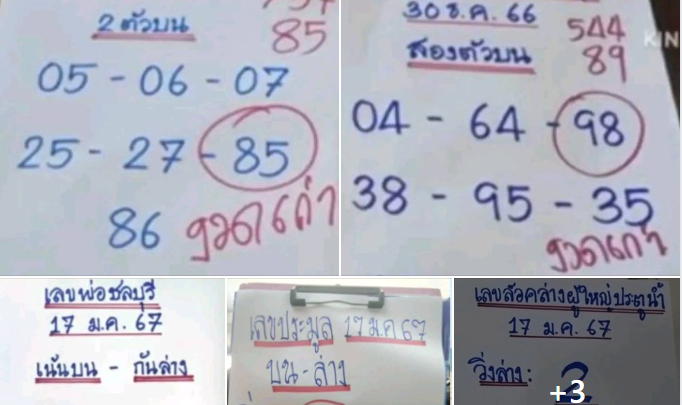 2 ตัวบน
85
05 - 06 - 07
25 - 27 - 85
86 งวดเก่า
30 ธ.ค. 66
544
สองตัวบน
89
KIN
04 - 64 - 98
38 - 95 - 35
งวดเก่า
เลขพ่อชลบุรี
17 ม.ค. 67
เน้นบน - กันล่าง
เลขประมูล 17 ม.ค 67
บน - ล่าง
เลขลัวคล่างผู้ใหญ่ประตูน้ำ
17 ม.ค. 67
วิ่งล่าง: 2
+3